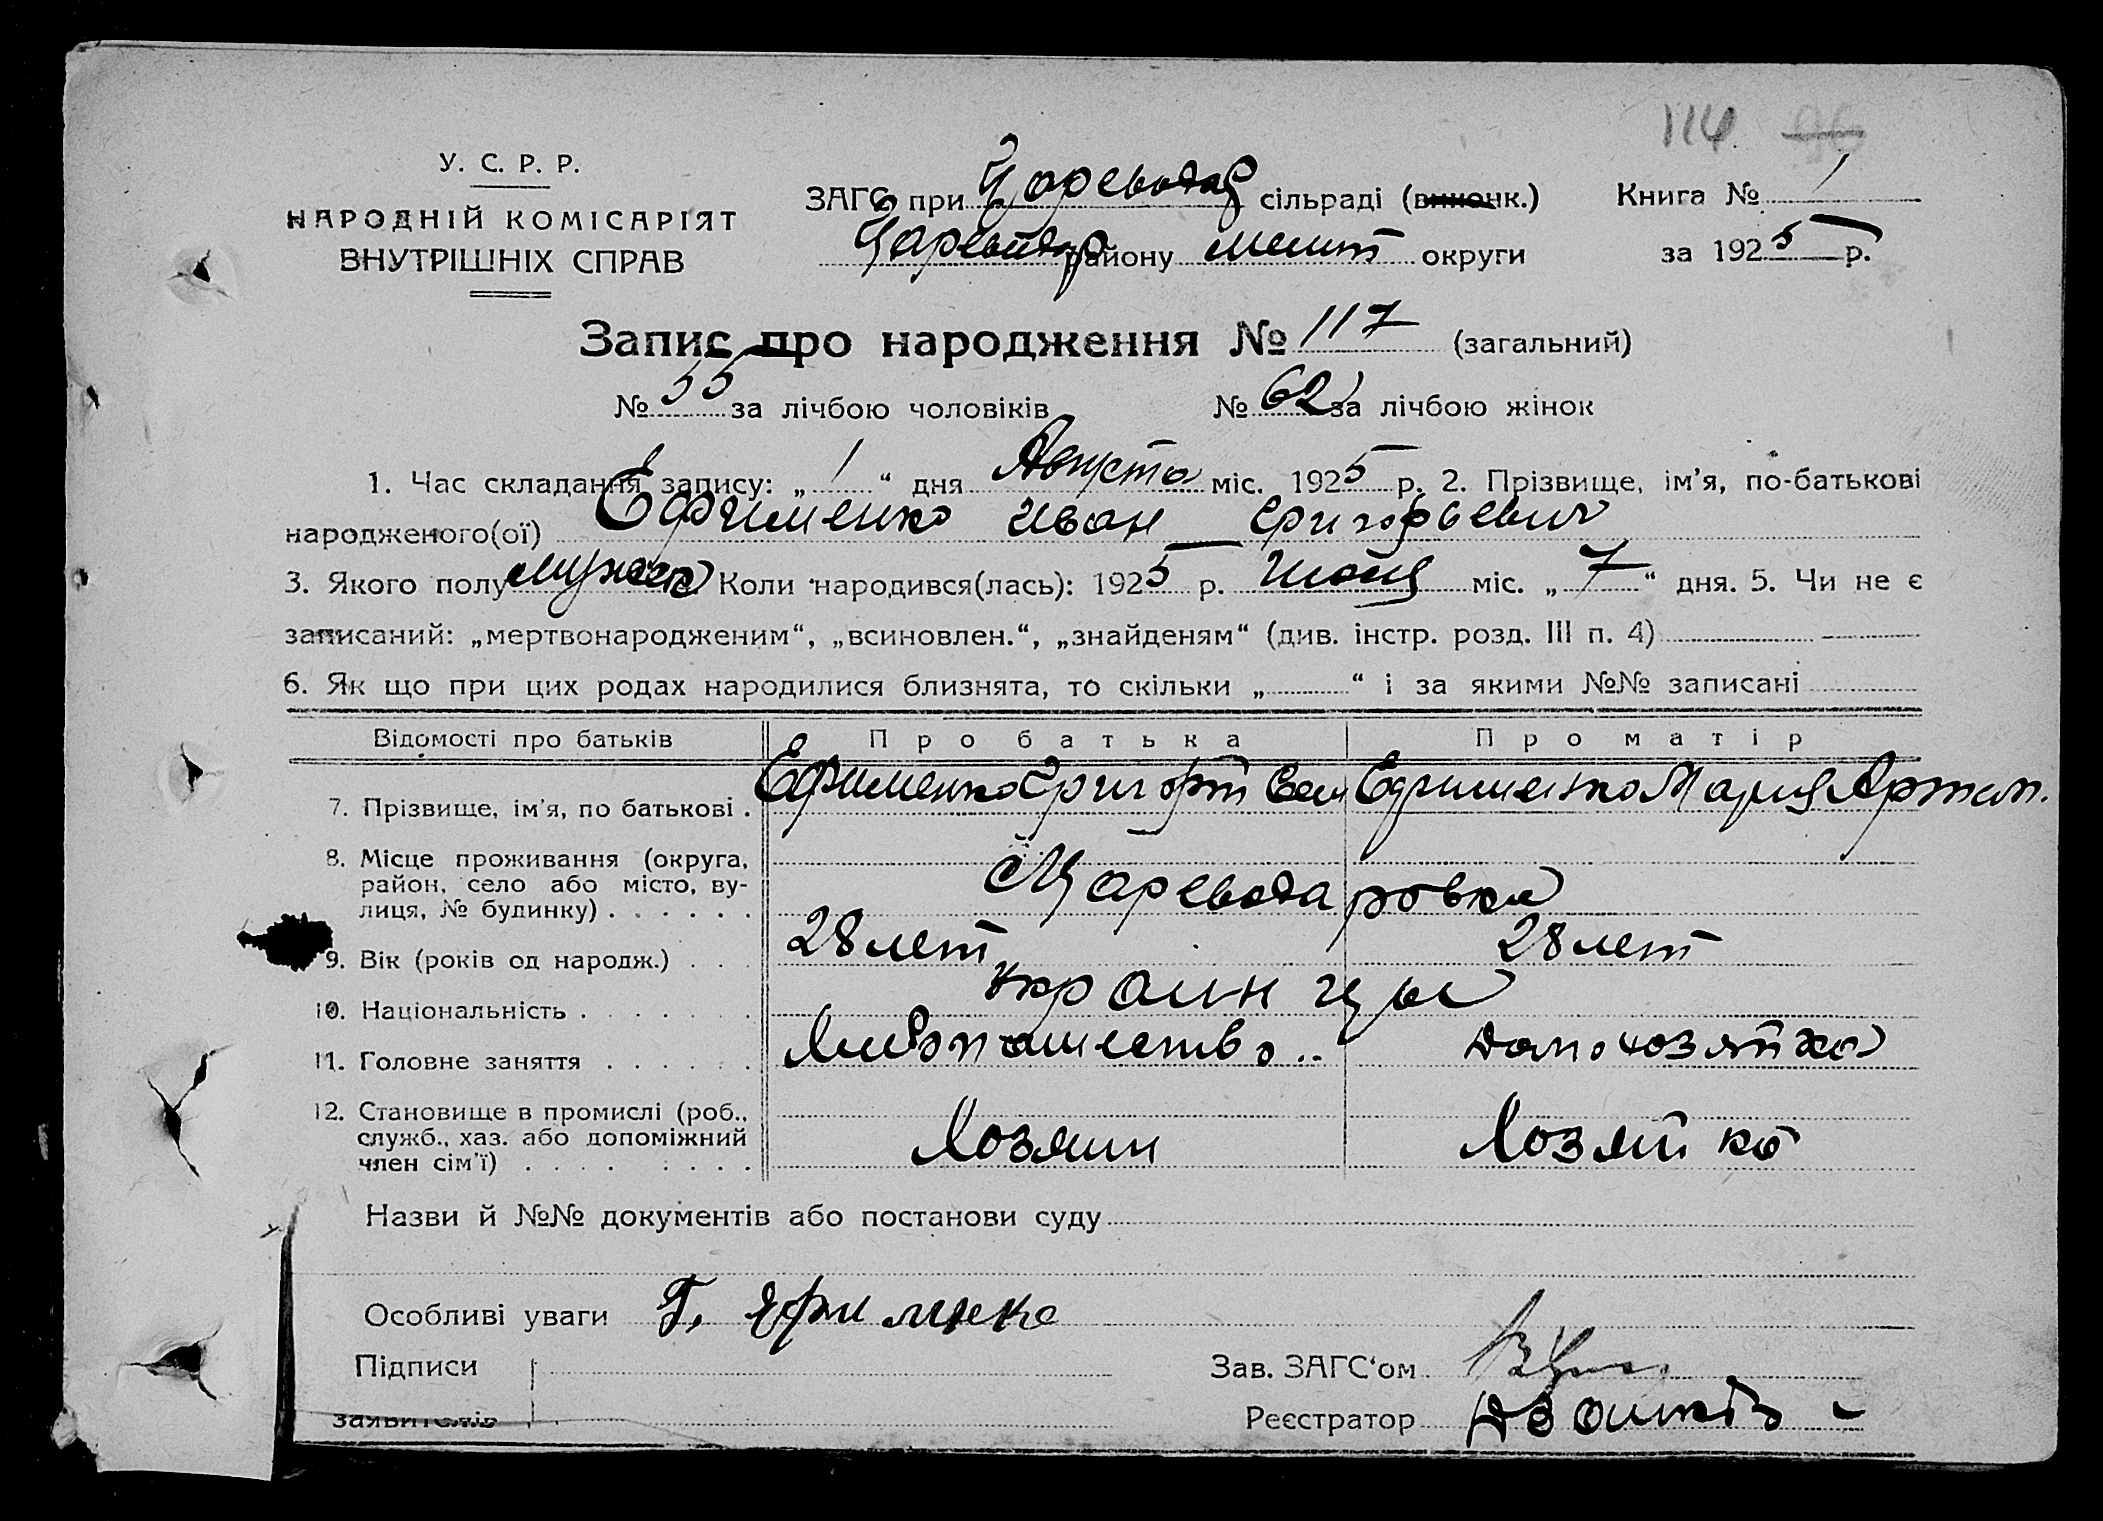 114 96
У. С. Р. Р.
НАРОДНІЙ КОМІСАРІЯТ
ВНУТРІШНІХ СПРАВ
ЗАГС при Царевода сільраді (виконк.) Книга № 1
району Мелит округи за 1925 р.
Запис про народження № 117 (загальний)
№ 55 за лічбою чоловіків № 62 за лічбою жінок
1. Час складання запису: „ 1 “ дня Августа міс. 1925 р. 2. Прізвище, ім'я, по-батькові
народженого(ої) Ефименко Иван Григорьевич
3. Якого полу мужск Коли народився(лась): 1925 р. Июля міс. „ 7 “ дня. 5. Чи не є
записаний: „мертвонародженим“, „всиновлен.“, „знайденям“ (див. інстр. розд. III п. 4)
6. Як що при цих родах народилися близнята, то скільки „ “ і за якими №№ записані
Відомості про батьків Про батька Про матір
7. Прізвище, ім'я, по батькові . Ефименко Григорий Ефименко Мария Артем.
8. Місце проживання (округа,
район, село або місто, ву-
лиця, № будинку) . . . . . . с Цареводаровка
9. Вік (років од народж.) . . . 28 лет 28 лет
10. Національність . . . . . . . украинцы
11. Головне заняття . . . . . . Хлебопашество .. Домохозяйка
12. Становище в промислі (роб.,
служб., хаз. або допоміжний
член сім'ї) . . . . . . . . Хозяин Хозяйка
Назви й №№ документів або постанови суду
Особливі уваги Г. Ефименко
Підписи Зав. ЗАГС'ом
заявителів Реєстратор